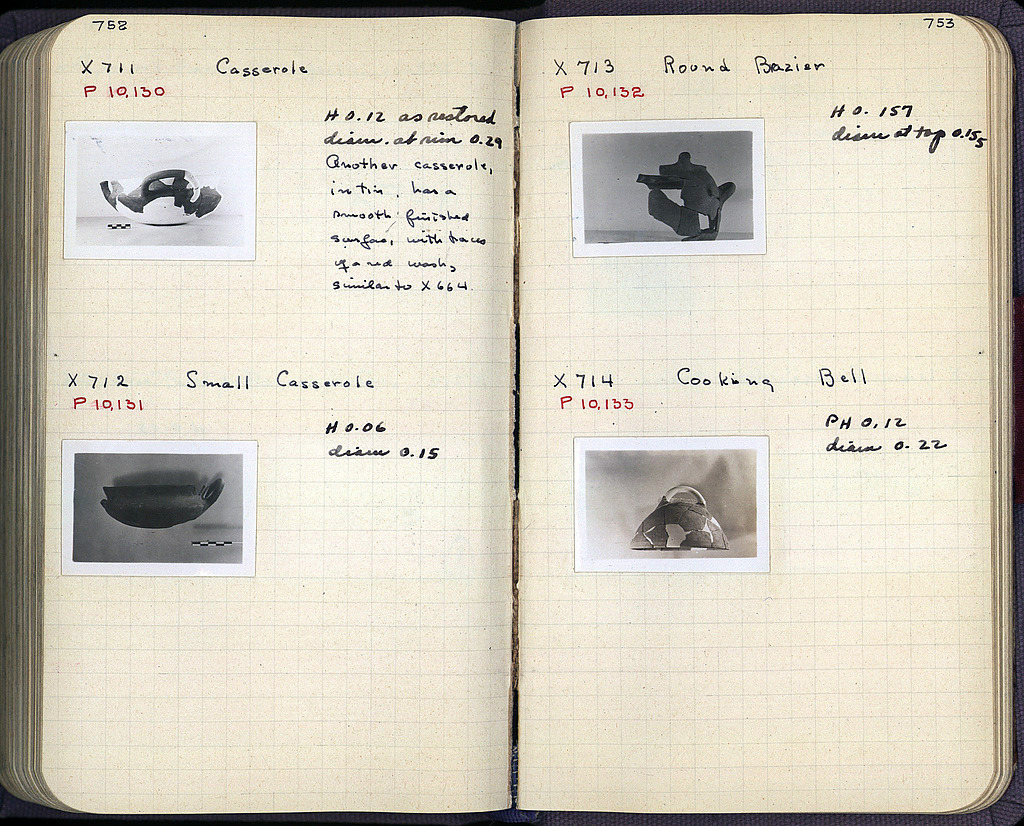 752
X 711 Casserole
P 10,130
H 0.12 as restored
diam. at rim 0.29
Another casserole,
in tin, has a
smooth, finished
surface, with traces
of a red wash,
similar to X 664.
X 712 Small Casserole
P 10,131
H 0.06
diam 0.15
753
X 713 Round Brazier
P 10,132
H 0.157
diam at top 0.155
X 714 Cooking Bell
P 10,133
PH 0.12
diam 0.22